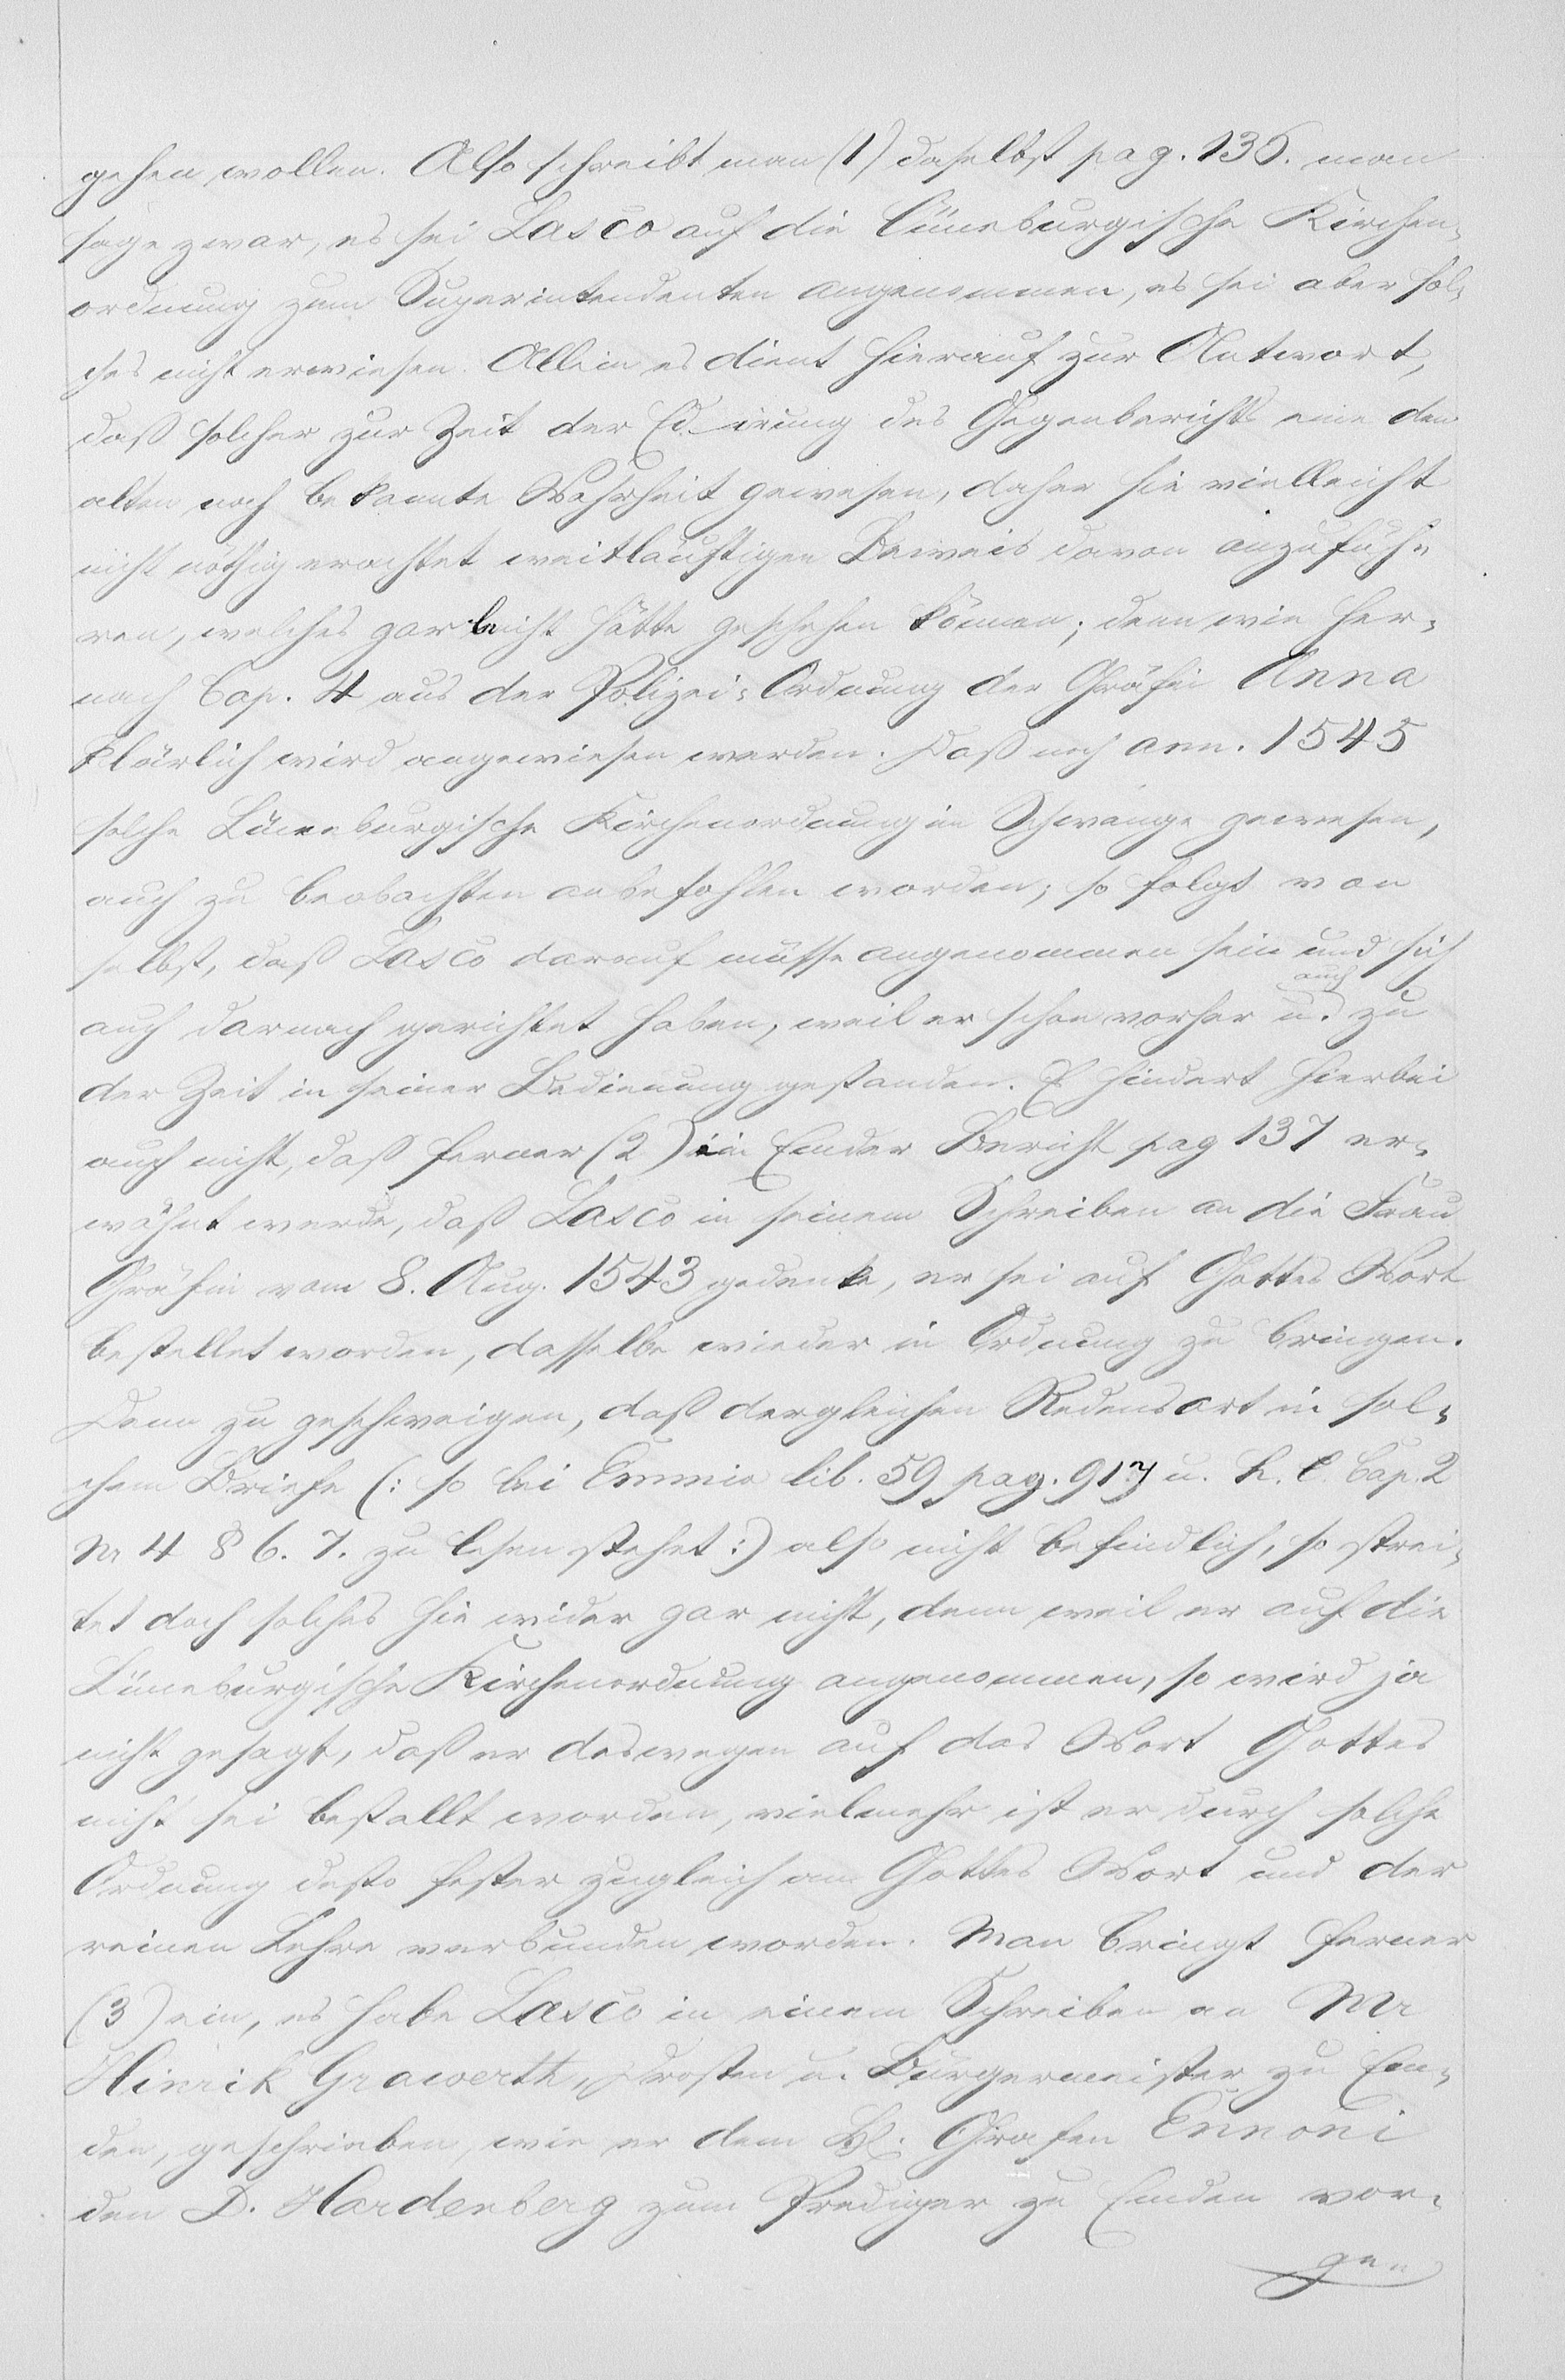 gehen wollen. Also schreibt man (1) daselbst pag. 136. man
sage zwar, es sei Lasco auf die Lüneburgische Kirchen-
ordnung zum Superintendenten angenommen, es sei aber sol-
ches nicht erwiesen. Allein es dient hierauf zur Antwort,
daß solches zur Zeit der Edirung des Gegenberichts eine den
alten noch bekannte Wahrheit gewesen, daher sie vielleicht
nicht nöthig erachtet weitläuftigen Beweis davon anzufüh-
ren, welches gar leicht hätte geschehen können; denn wie her-
nach Cap. 4 aus der Polizei-Ordnung der Gräfin Anna
klärlich wird angewiesen werden. Daß noch ann. 1545
solche Lüneburgische Kirchenordnung im Schwange gewesen,
auch zu beobachten anbefohlen worden; so folgt von
selbst, daß Lasco darauf müsse angenommen sein und sich
auch darnach gerichtet haben, weil er schon vorher u. auch zu
der Zeit in seiner Bedienung gestanden. Es hindert hierbei
auch nicht, daß ferner (2) im Emder Bericht pag 137 er-
wähnt werde, daß Lasco in seinem Schreiben an die Frau
Gräfin vom 8. Aug. 1543 gedenke, er sei auf Gottes Wort
bestellet worden, dasselbe wieder in Ordnung zu bringen.
Denn zu geschweigen, daß dergleichen Redensart in sol-
chem Briefe (: so bei Emmio lib. 59 pag. 917 u. h. l. Cap. 2
Nr 4 § 6. 7. zu lesen stehet :) also nicht befindlich, so strei-
tet doch solches hie wider gar nicht, denn weil er auf die
Lüneburgische Kirchenordnung angenommen, so wird ja
nicht gesagt, daß er deswegen auf das Wort Gottes
nicht sei bestallt worden, vielmehr ist er durch solche
Ordnung desto fester zugleich an Gottes Wort und der
reinen Lehre verbunden worden. Man bringt ferner
(3) ein, es habe Lasco in einem Schreiben an Mr
Hinrik Grawerth, Drosten u. Bürgermeister zu Em-
den, geschrieben, wie er dem Grafen Ennoni
den D. Hardenberg zum Prediger zu Emden vor-